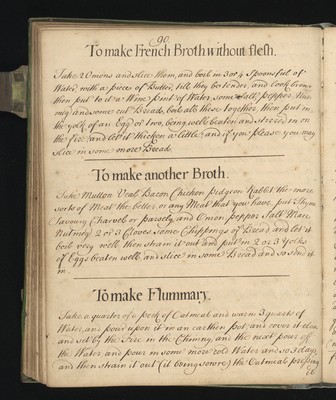 90
To make French Broth without flesh.
Take 2 Onions and slice them, and boil in 3 or 4 Spoonsful of
Water with a piece of Butter, till they be tender, and look brown
then put to it a Wine pint of Water, some Salt, pepper,
and some cut Bread, boil all these together, then put in
the yolk of an Egg or two, being well beaten and stirred in on
the fire and let it thicken a little, and if you please you may
slice in some more Bread.
To make another Broth.
Take Mutton Veal Bacon Chicken pidgeon Rabbit the more
sorts of Meat the better, or any Meat that you have, put Thyme
Savoury Charvel or parsely, and Onion pepper Salt Mace
Nutmeg 2 or 3 Cloves some Chippings of Bread and let it
boil very well, then strain it out and put in 2 or 3 yolks
of Eggs beaten well, and slice in some Bread and so send it
in.
To make Flummary.
Take a quarter of a peck of Oatmeal and warm 3 quarts of
Water, and pour upon it in an earthen pot, and cover it close
and set by the Fire in the Chimny, and the next pour off
the Water and pour in some more cold Water and so 3 days
and then strain it out (it being sowre) the Oatmeal pressing